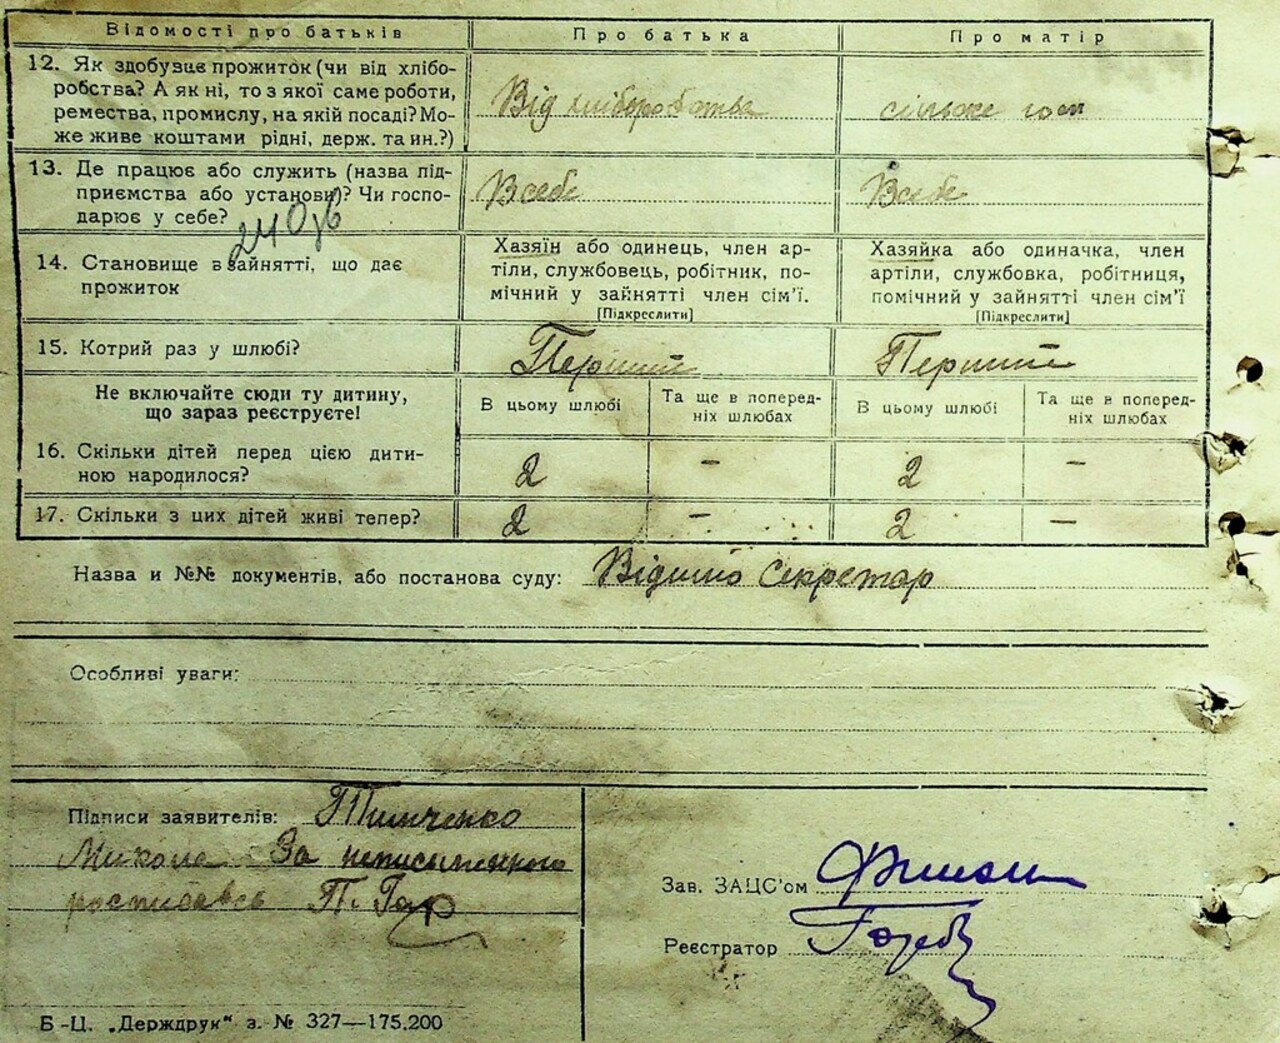 Відомості про батьків Про батька Про матір
12. Як здобуває прожиток (чи від хлібо-
робства? А як ні, то з якої саме роботи,
ремества, промислу, на якій посаді? Мо-
же живе коштами рідні, держ. та ин.?)
Від хліборобства
сільське госп
13. Де працює або служить (назва під-
приємства або установи)? Чи госпо-
дарює у себе?
Всебе
Всебе
14. Становище в зайнятті, що дає
прожиток
Хазяїн або одинець, член ар-
тіли, службовець, робітник, по-
мічний у зайнятті член сім'ї.
[Підкреслити]
Хазяйка або одиначка, член
артіли, службовка, робітниця,
помічний у зайнятті член сім'ї
[Підкреслити]
15. Котрий раз у шлюбі?
Перший
Перший
Не включайте сюди ту дитину,
що зараз реєструєте!
В цьому шлюбі
Та ще в поперед-
ніх шлюбах
В цьому шлюбі
Та ще в поперед-
ніх шлюбах
16. Скільки дітей перед цією дити-
ною народилося?
2 – 2 –
17. Скільки з цих дітей живі тепер? 2 – 2 –
Назва и №№ документів, або постанова суду: Відомо Секретар
Особливі уваги:
Підписи заявителів: Тимченко
Микола За неписьменного
росписавсь П. Гор
Зав. ЗАЦС'ом
Реєстратор
Б-Ц. „Держдрук“ з. № 327—175.200